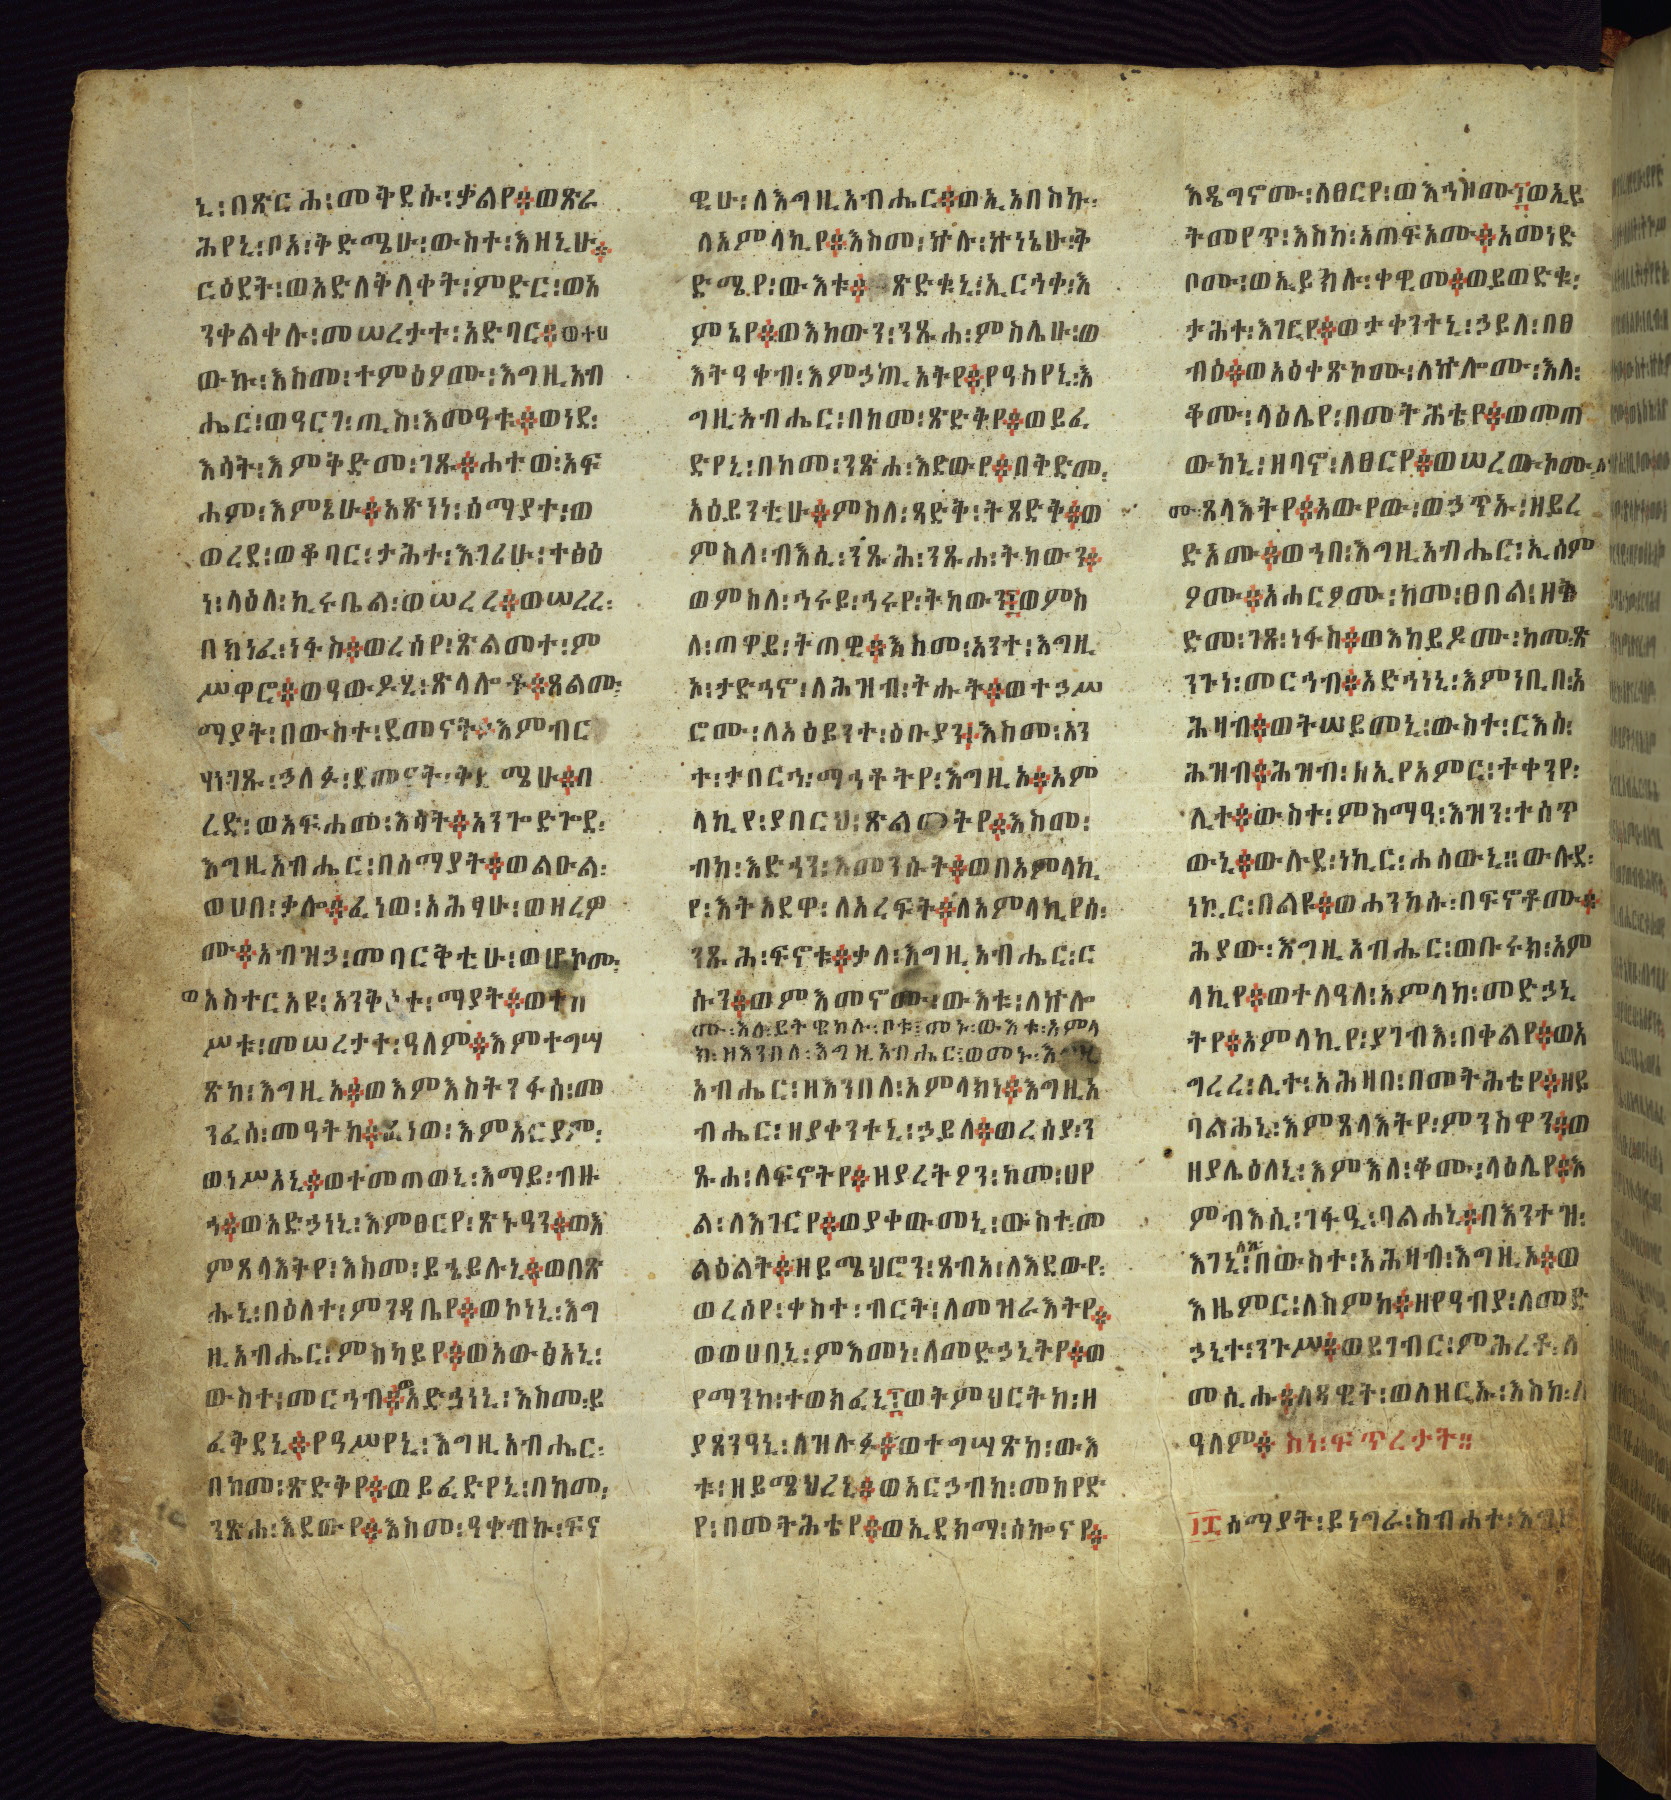 ኒ፡በጽርሐ፡መቅደሱ፡ቃልየ፨ወጽራ
ሕየኒ፡ቦአ፡ቅድሜሁ፡ውስተ፡እዘኒሁ፨
ርዕደት፡ወአድለቅለቀት፡ምድር፡ወአ
ንቀልቀሉ፡መሠረታተ፡አድባር፨ወተሀ
ውኩ፡እስመ፡ተምዕዖሙ፡እግዚአብ
ሔር፡ወዓርገ፡ጢስ፡እመዓቱ፨ወነደ፡
እሳት፡እምቅድመ፡ገጹ፨ሐተወ፡አፍ
ሐም፡እምኔሁ፨አጽነነ፡ሰማያተ፡ወ
ወረደ፡ወቆባር፡ታሕተ፡እገሪሁ፡ተፅዕ
ነ፡ላዕለ፡ኪሩቤል፡ወሠረረ፨ወሠረረ፡
በክነፈ፡ነፋስ፨ወረሰየ፡ጽልመተ፡ም
ሥዋሮ፨ወዓውዶሂ፡ጽላሎቶ፨ጸልሙ፡
ማያት፡በውስተ፡ደመናት፨እምብር
ሃነ፡ገጹ፡ኃለፉ፡ደመናት፡ቅድሜሁ፨በ
ረድ፡ወአፍሐመ፡እሳት፨አንጐድጐደ፡
እግዚአብሔር፡በሰማያት፨ወልዑል፡
ወሀበ፡ቃሎ፨ፈነወ፡አሕፃሁ፡ወዘረዎ
ሙ፨አብዝኃ፡መባርቅቲሁ፡ወሆኮሙ፡
ወአስተርአዩ፡አንቅዕተ፡ማያት፨ወተከ
ሥቱ፡መሠረታተ፡ዓለም፨እምተግሣ
ጽከ፡እግዚአ፨ወእምእስትንፋሰ፡መ
ንፈሰ፡መዓትከ፨ፈነወ፡እምአርያም፡
ወነሥአኒ፨ወተመጠወኒ፡እማይ፡ብዙ
ኅ፨ወአድኃነኒ፡እምፀርየ፡ጽኑዓን፨ወእ
ምጸላእትየ፡እስመ፡ይኄይሉኒ፨ወበጽ
ሑኒ፡በዕለተ፡ምንዳቤየ፨ወኮነኒ፡እግ
ዚአብሔር፡ምስካይየ፨ወአውፅአኒ፡
ውስተ፡መርኅብ፨ወአድኃነኒ፡እስመ፡ይ
ፈቅደኒ፨የዓሥየኒ፡እግዚአብሔር፡
በከመ፡ጽድቅየ፨ወይፈድየኒ፡በከመ፡
ንጽሐ፡እደውየ፨እስመ፡ዓቀብኩ፡ፍና
ዊሁ፡ለእግዚአብሔር፨ወኢአበስኩ፡
ለአምላኪየ፨እስመ፡ኵሉ፡ኵነኔሁ፡ቅ
ድሜየ፡ውእቱ፨ጽድቁኒ፡ኢርኅቀ፡እ
ምኔየ፨ወእከውን፡ንጹሐ፡ምስሌሁ፡ወ
እትዓቀብ፡እምኃጢአትየ፨የዓስየኒ፡እ
ግዚአብሔር፡በከመ፡ጽድቅየ፨ወይፈ
ድየኒ፡በከመ፡ንጽሐ፡እደውየ፨በቅድመ፡
አዕይንቲሁ፨ምስለ፡ጻድቅ፡ትጸድቅ፨ወ
ምስለ፡ብእሲ፡ንጹሕ፡ንጹሐ፡ትከውን፨
ወምስለ፡ኅሩይ፡ኅሩየ፡ትከውን፨ወምስ
ለ፡ጠዋይ፡ትጠዊ፨እስመ፡አንተ፡እግዚ
አ፡ታድኅኖ፡ለሕዝብ፡ትሑት፨ወተኃሥ
ሮሙ፡ለአዕይንተ፡ዕቡያን፨እስመ፡አን
ተ፡ታበርኅ፡ማኅቶትየ፡እግዚአ፨አም
ላኪየ፡ያበርህ፡ጽልመትየ፨እስመ፡
ብከ፡እድኅን፡እመንሱት፨ወበአምላኪ
የ፡እትአደዋ፡ለአረፍት፨ለአምላኪየሰ፡
ንጹሕ፡ፍኖቱ፨ቃለ፡እግዚአብሔር፡ር
ሱን፨ወምእመኖሙ፡ውእቱ፡ለኵሎ
ሙ፡እለ፡ይትዌከሉ፡ቦቱ፡መኑ፡ውእቱ፡አምላ
ክ፡ዘእንበለ፡እግዚአብሔር፡ወመኑ፡እግዚ
አብሔር፡ዘእንበለ፡አምላክነ፨እግዚአ
ብሔር፡ዘያቀንተኒ፡ኃይለ፨ወረሰያ፡ን
ጹሐ፡ለፍኖትየ፨ዘያረትዖን፡ከመ፡ሀየ
ል፡ለእገርየ፨ወያቀውመኒ፡ውስተ፡መ
ልዕልት፨ዘይሜህሮን፡ጸብአ፡ለእደውየ፡
ወረሰየ፡ቀስተ፡ብርት፡ለመዝራእትየ፨
ወወሀበኒ፡ምእመነ፡ለመድኃኒትየ፨ወ
የማንከ፡ተወክፈኒ፨ወትምህርትከ፡ዘ
ያጸንዓኒ፡ለዝሉፉ፨ወተግሣጽከ፡ውእ
ቱ፡ዘይሜህረኒ፨ወአርኃብከ፡መከየድ
የ፡በመትሕቴየ፨ወኢደክማ፡ሰኰናየ፨
እዴግኖሙ፡ለፀርየ፡ወእኅዞሙ፨ወኢይ
ትመየጥ፡እስከ፡አጠፍኦሙ፨አመነድ
ቦሙ፡ወኢይክሉ፡ቀዊመ፨ወይወድቁ፡
ታሕተ፡እገርየ፨ወታቀንተኒ፡ኃይለ፡በፀ
ብዕ፨ወአዕተጽኮሙ፡ለኵሎሙ፡እለ፡
ቆሙ፡ላዕሌየ፡በመትሕቴየ፨ወመጠ
ውከኒ፡ዘባኖ፡ለፀርየ፨ወሠረውኮሙ፡ለ
ጸላእትየ፨አውየው፡ወኃጥኡ፡ዘይረ
ድአሙ፨ወኀበ፡እግዚአብሔር፡ኢሰም
ዖሙ፨አሐርፆሙ፡ከመ፡ፀበል፡ዘቅ
ድመ፡ገጸ፡ነፋስ፨ወእከይዶሙ፡ከመ፡ጽ
ንጉነ፡መርኅብ፨አድኅነኒ፡እምነቢበ፡አ
ሕዛብ፨ወትሠይመኒ፡ውስተ፡ርእሰ፡
ሕዝብ፨ሕዝብ፡ዘኢየአምር፡ተቀንየ፡
ሊተ፨ውስተ፡ምስማዓ፡እዝን፡ተሰጥ
ውኒ፨ውሉደ፡ነኪር፡ሐሰውኒ።ውሉደ፡
ነኪር፡በልዩ፨ወሐንከሱ፡በፍኖቶሙ፨
ሕያው፡እግዚአብሔር፡ወቡሩክ፡አም
ላኪየ፨ወተለዓለ፡አምላከ፡መድኃኒ
ትየ፨አምላኪየ፡ያገብእ፡በቀልየ፨ወአ
ግረረ፡ሊተ፡አሕዛበ፡በመትሕቴየ፨ዘይ
ባልሐኒ፡እምጸላእትየ፡ምንስዋን፨ወ
ዘያሌዕለኒ፡እምእለ፡ቆሙ፡ላዕሌየ፨እ
ምብእሲ፡ገፋዒ፡ባልሐኒ፨በእንተዝ፡
እገኒ፡ለከ፡በውስተ፡አሕዛብ፡እግዚኦ፨ወ
እዜምር፡ለስምከ፨ዘየዓብያ፡ለመድ
ኃኒተ፡ንጉሥ፨ወይገብር፡ምሕረቶ፡ለ
መሲሑ፨ለዳዊት፡ወለዘርኡ፡እስከ፡ለ
ዓለም፨ስነ፡ፍጥረታት።
፲፰ሰማያት፡ይነግራ፡ስብሐተ፡እግዚ